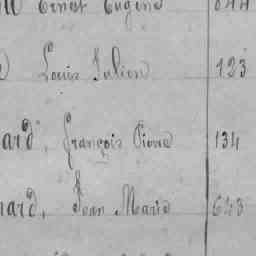 Ernest Eugène 844
Louis Julien 123
ard, François Pierre 134
ard, Jean Marie 643